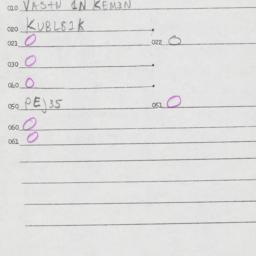 010 VASTU IN KEMEN
020 KUBLBIK
021 0 022 0
030 0
040 0
050 PEJ35 051 0
060 0
061 0